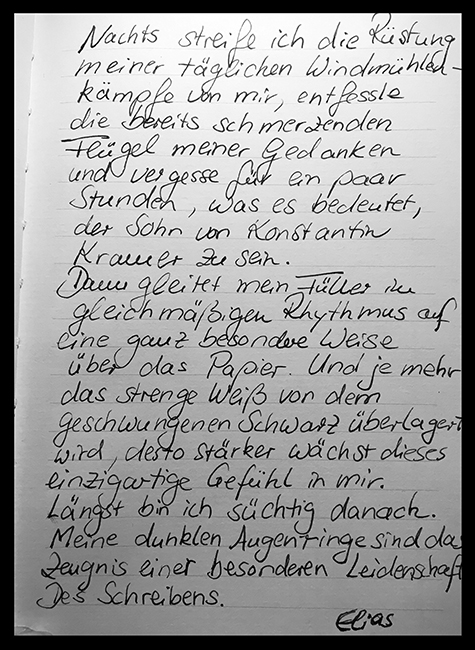 Nachts streife ich die Rüstung
meiner täglichen Windmühlen-
kämpfe von mir, entfessle
die bereits schmerzenden
Flügel meiner Gedanken
und vergesse für ein paar
Stunden, was es bedeutet,
der Sohn von Konstantin
Kramer zu sein.
Dann gleitet mein Füller im
gleichmäßigen Rhythmus auf
eine ganz besondere Weise
über das Papier. Und je mehr
das strenge Weiß von dem
geschwungenen Schwarz überlagert
wird, desto stärker wächst dieses
einzigartige Gefühl in mir.
Längst bin ich süchtig danach.
Meine dunklen Augenringe sind da
Zeugnis einer besonderen Leidenschaf
Des Schreibens.
Elias